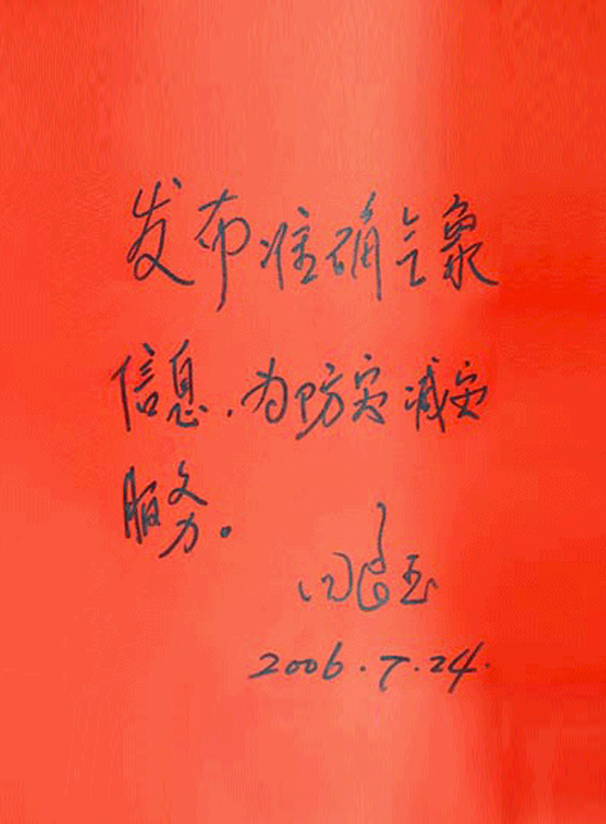 发布准确气象
信息,为防灾减灾
服务。
回良玉
2006.7.24.